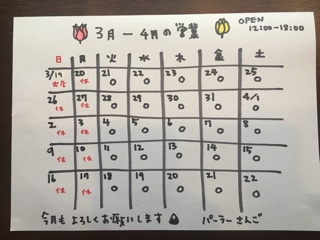 3月ー4月の営業
OPEN
12:00-18:00
日 月 火 水 木 金 土
3/19 20 21 22 23 24 25
出店 休 ○ ○ ○ ○ ○
26 27 28 29 30 31 4/1
休 休 ○ ○ ○ ○ ○
2 3 4 5 6 7 8
休 休 ○ ○ ○ ○ ○
9 10 11 12 13 14 15
休 休 ○ ○ ○ ○ ○
16 17 18 19 20 21 22
休 休 ○ ○ ○ ○ ○
今月もよろしくお願いします
パーラーさんご